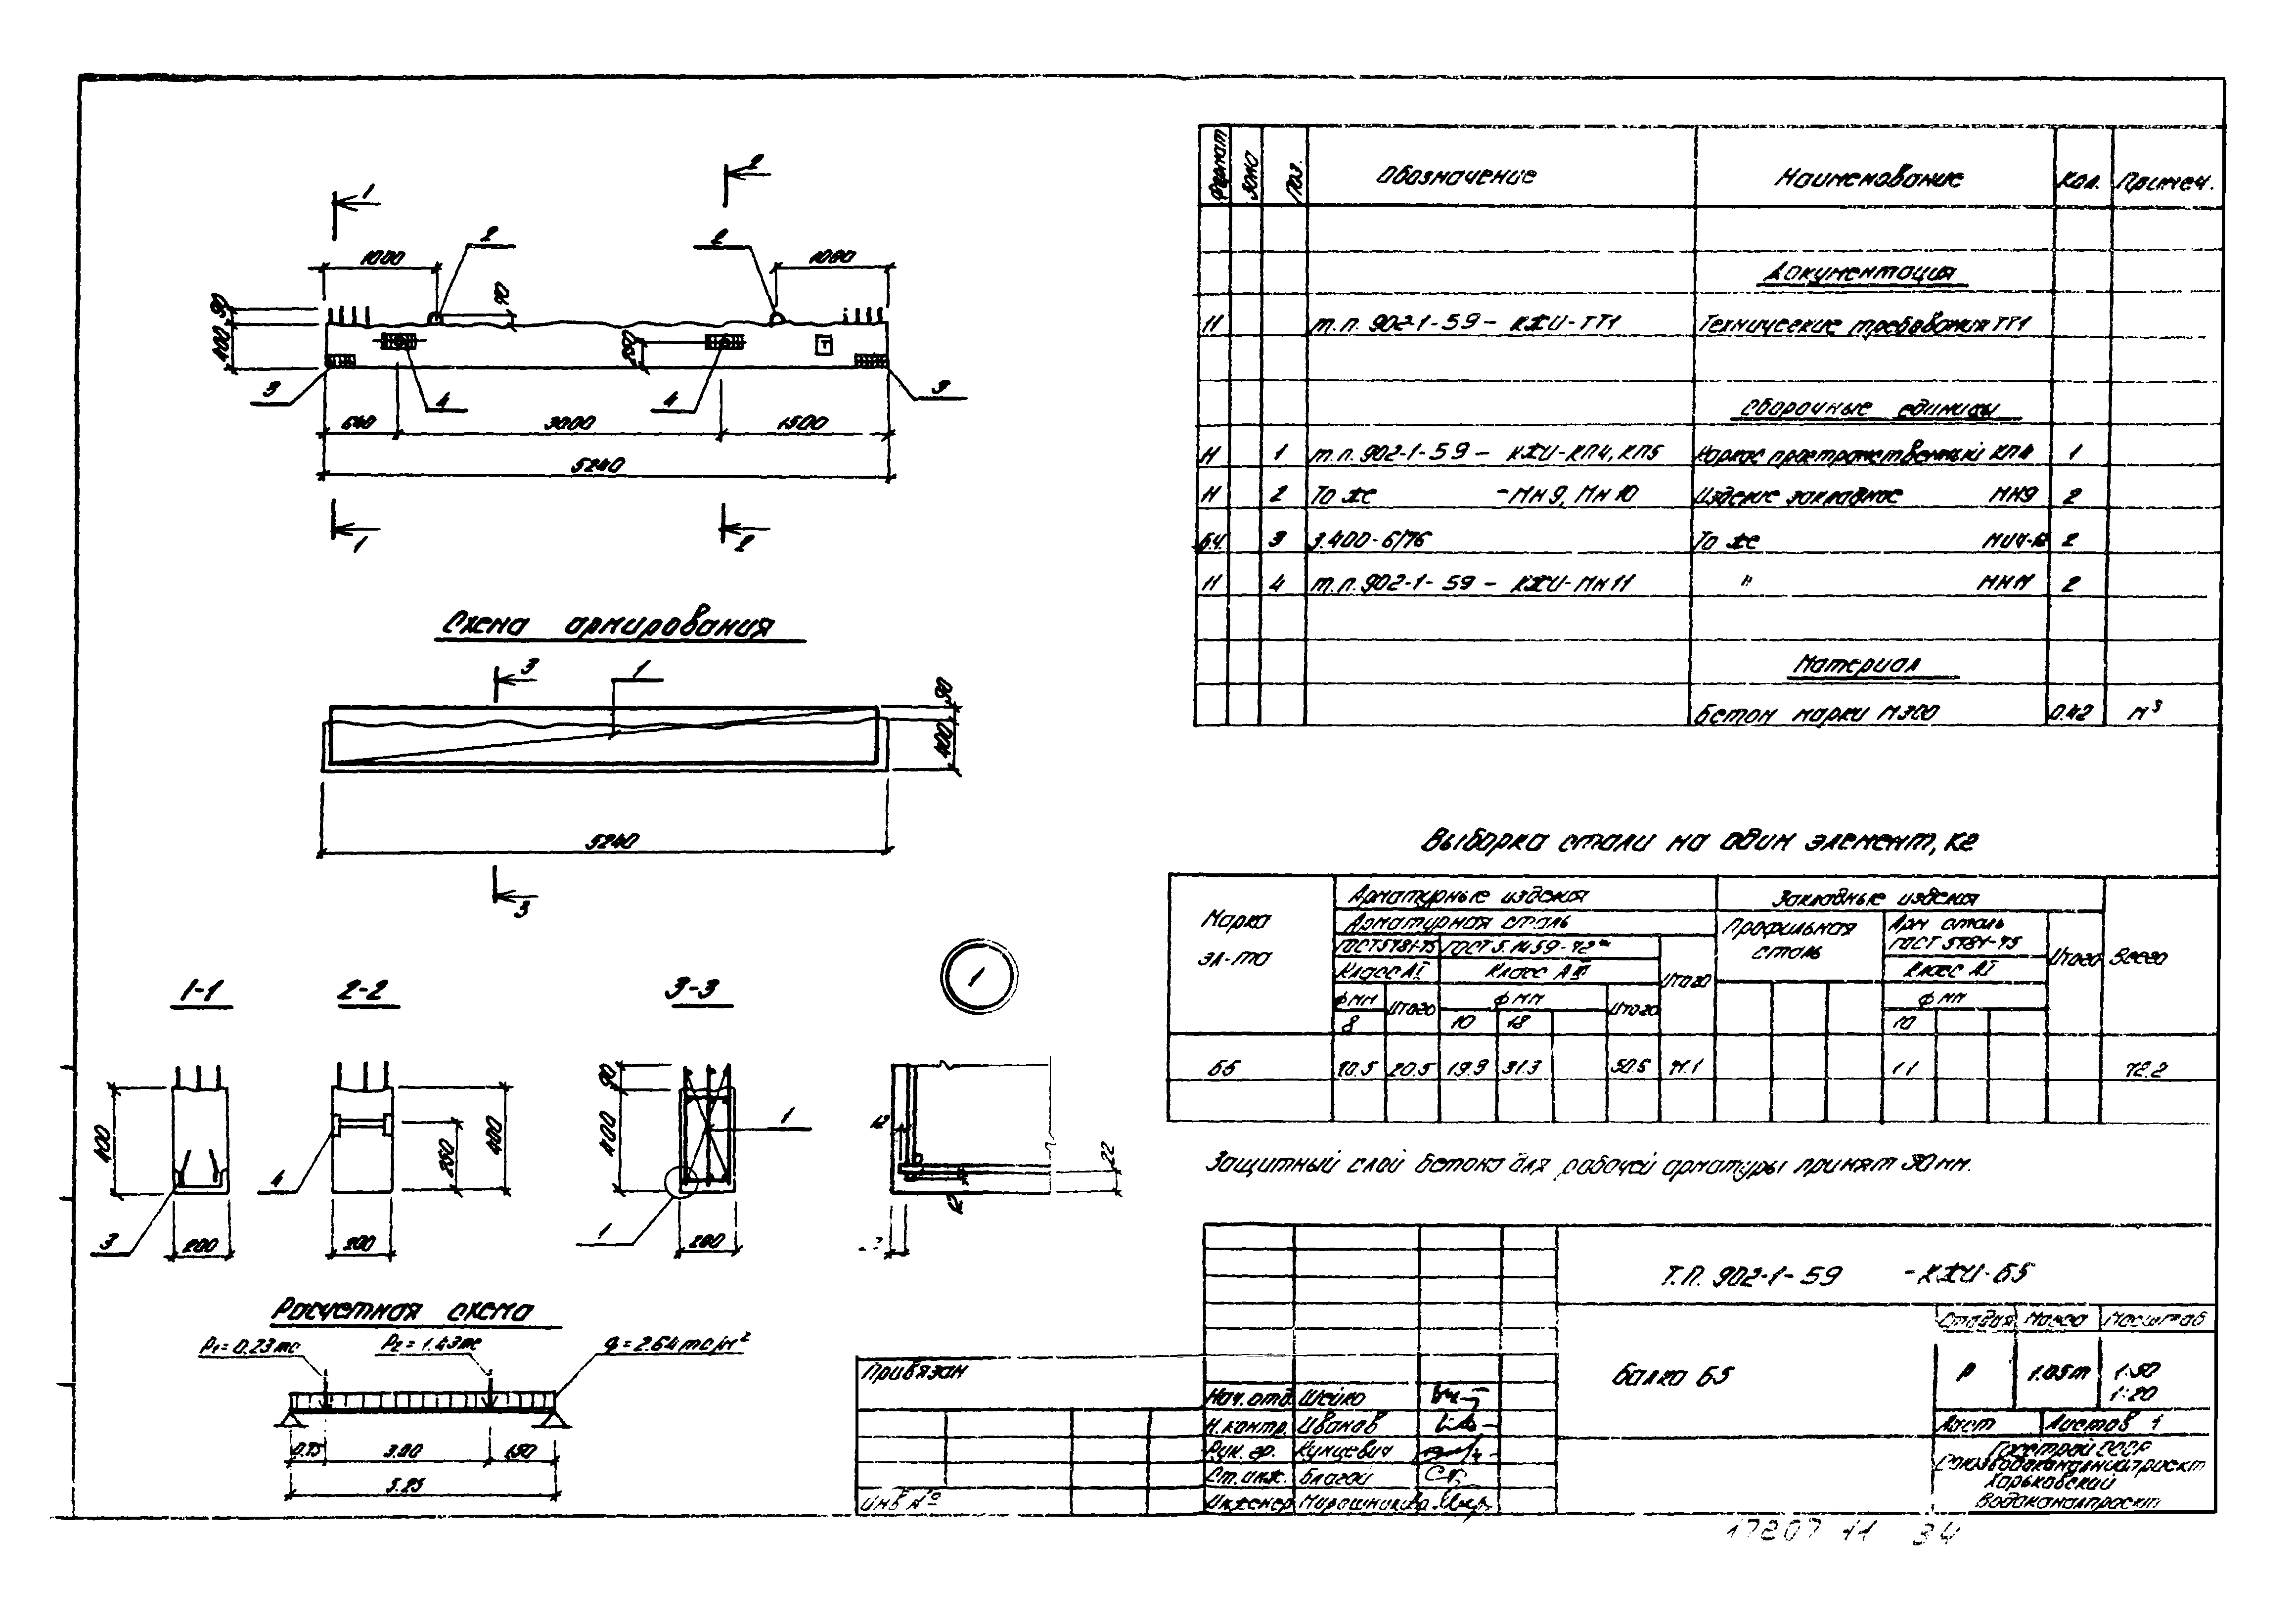 1
2
2
2
1000
1000
90
400
40
250
3
4
4
3
640
3000
1500
5240
1
2
Схема армирования
3
1
90
400
5240
3
1-1
2-2
3-3
1
400
3
200
4
250
400
200
90
400
1
1
200
12
12
22
Расчетная схема
P1=0.73тс
P2=1.43тс
q=2.64тс/м²
0.75
3.00
1.50
5.25
Формат
Зона
Поз.
Обозначение
Наименование
Кол.
Примеч.
Документация
И т.п. 902-1-59 - КЖИ-ТТ1 Технические требования ТТ1
Сборочные единицы
И 1 т.п. 902-1-59 - КЖИ-КП4, КП5 Каркас пространственный КП4 1
И 2 То же -МН9, МН10 Изделие закладное МН9 2
БЧ 3 3.400-6/76 То же 2
И 4 т.п. 902-1-59 - КЖИ-МН11 " МН11 2
Материал
Бетон марки М300 0.42 м³
Выборка стали на один элемент, кг
Марка
эл-та
Арматурные изделия
Закладные изделия
Всего
Арматурная сталь
Профильная
сталь
Арм сталь
ГОСТ 5781-75
Итого
ГОСТ 5781-75
ГОСТ 5.1459-72*
Итого
Класс АI
Класс АIII
Класс АI
ф мм
Итого
ф мм
Итого
ф мм
8
10
18
10
Б5 20.5 20.5 19.3 31.3 50.6 71.1 1.1 72.2
Защитный слой бетона для рабочей арматуры принят 30 мм.
Т.П. 902-1-59 -КЖИ-Б5
Балка Б5
Стадия Масса Масштаб
Р 1.05т 1:50
1:20
Лист Листов 1
Госстрой СССР
Союзводоканалниипроект
Харьковский
Водоканалпроект
Привязан
ИНВ №
Нач. отд. Шейко
Н. контр. Иванов
Рук. гр. Кунцевич
Ст. инж. Благой
Инженер Мирошникова
17207 11 34